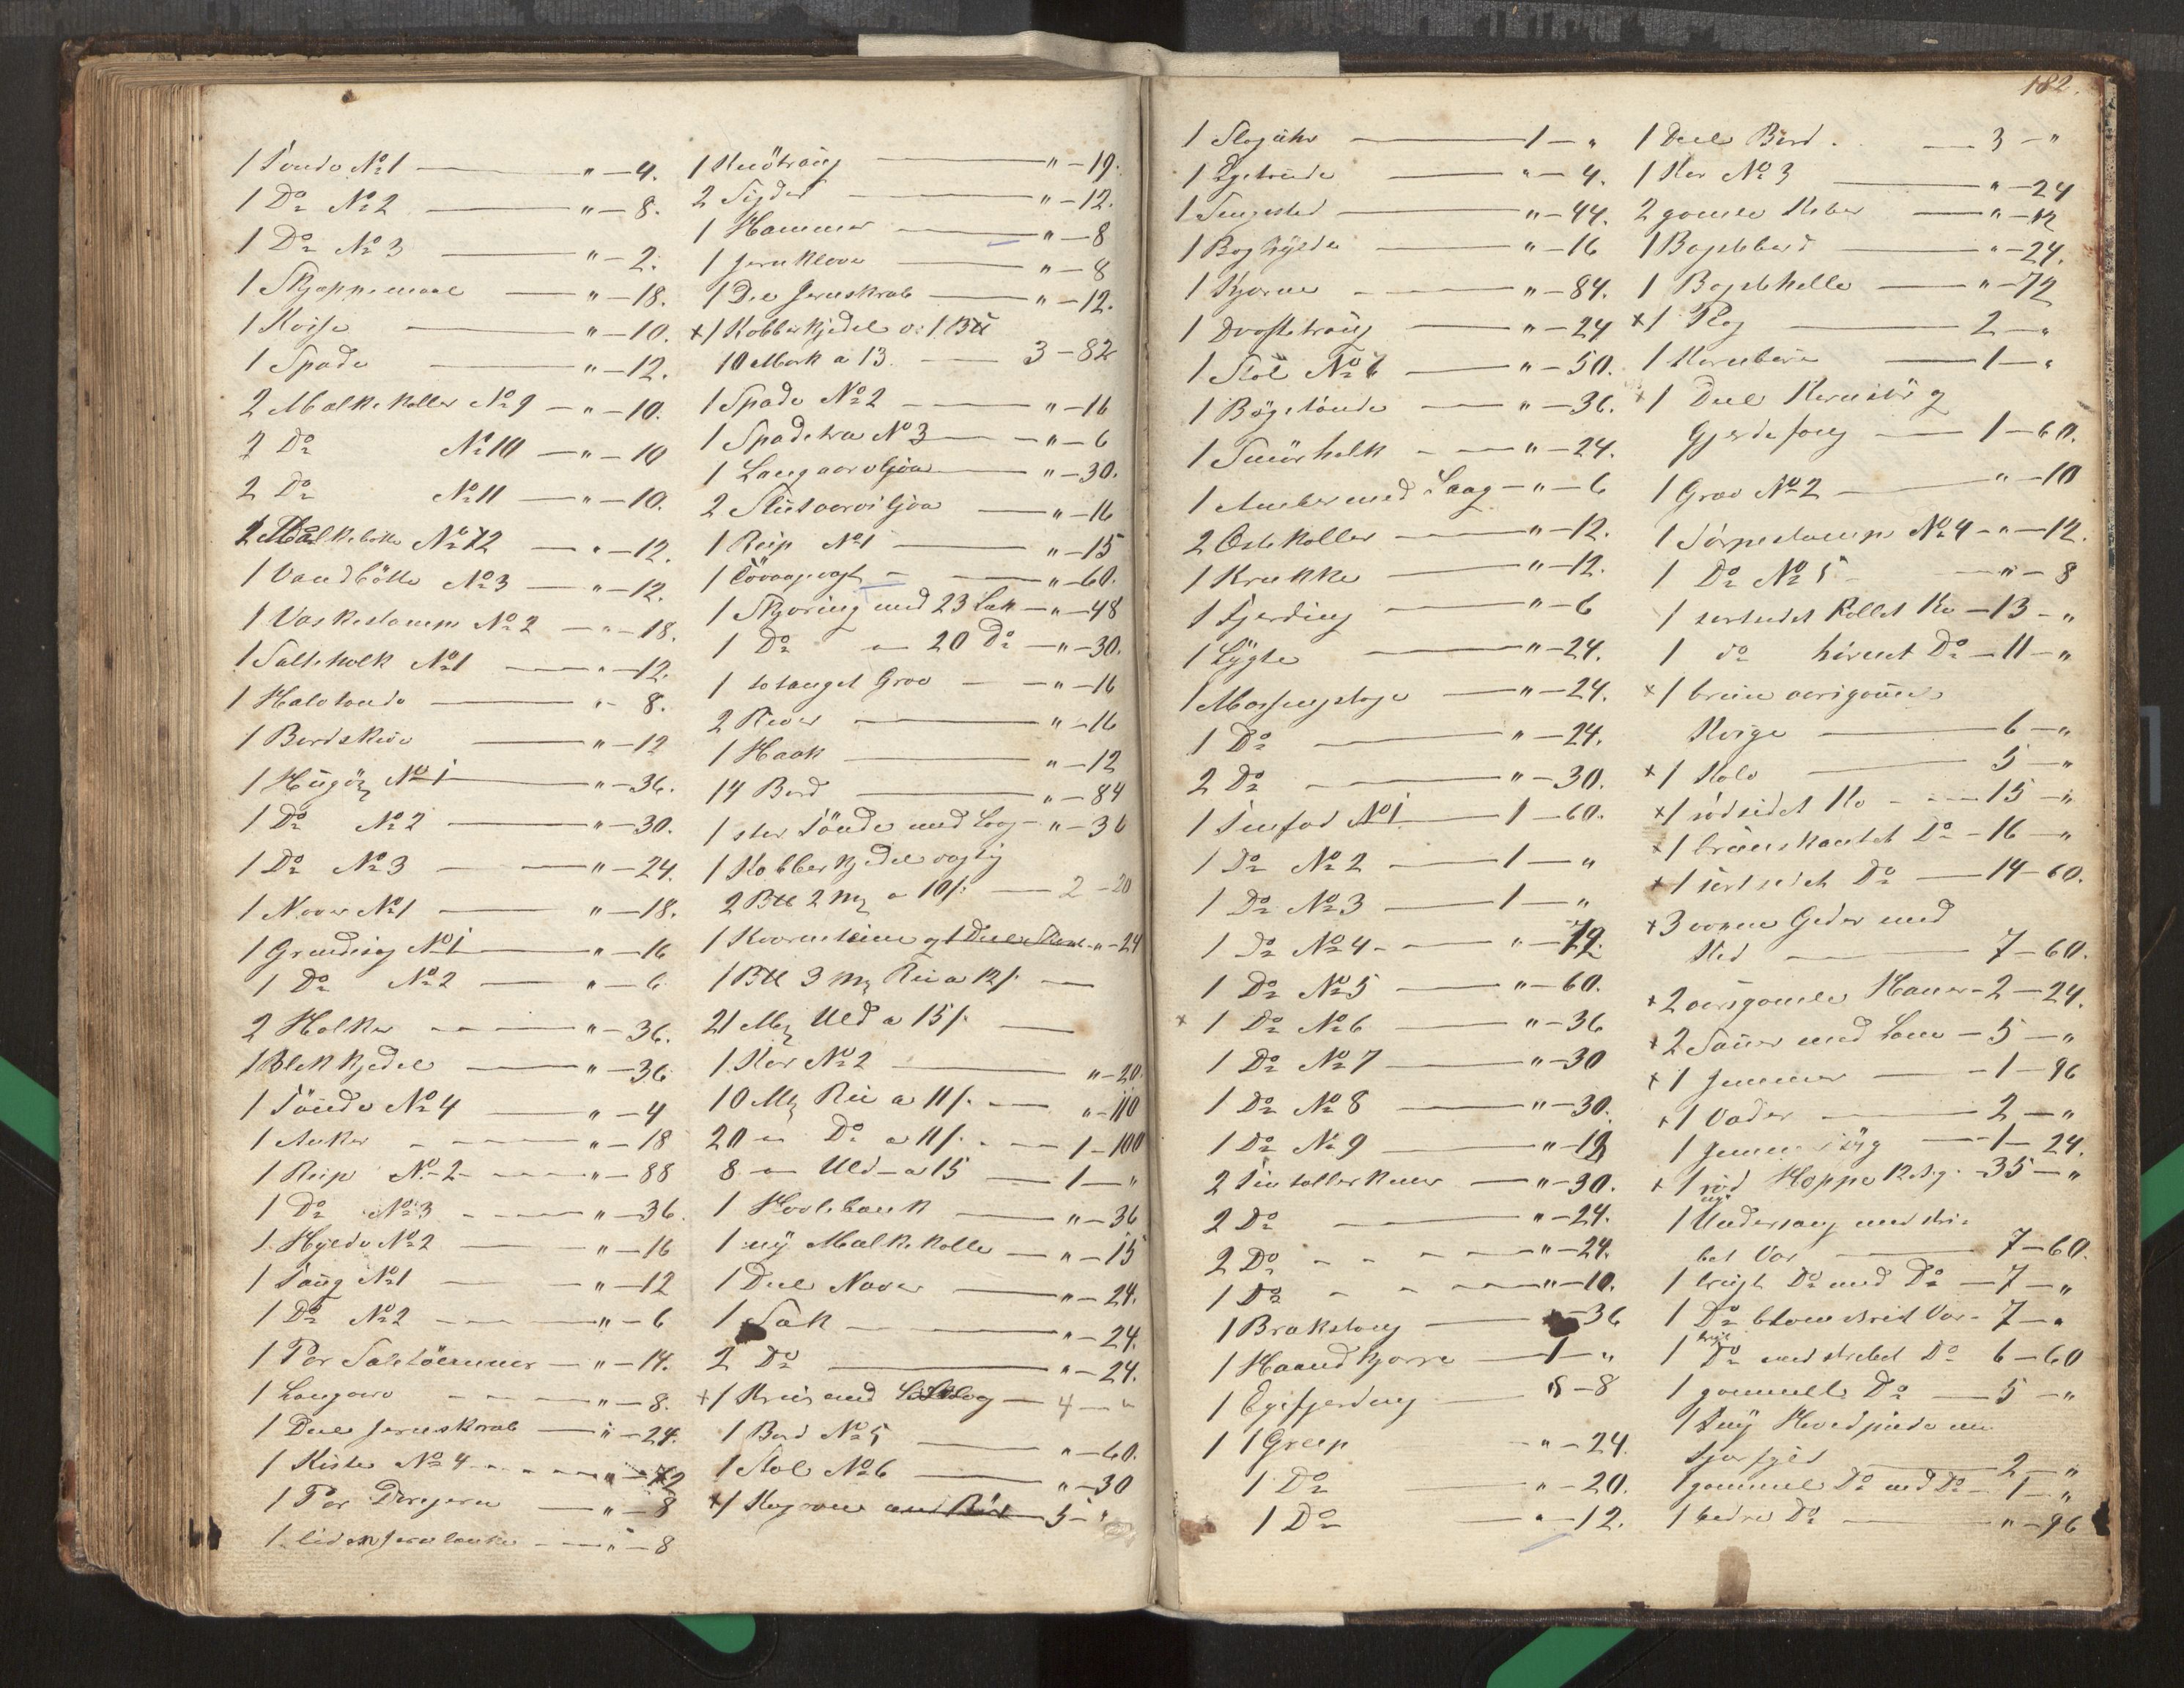 1 Tønde No 1 — " — 4.
1 Do No 2 — " — 8.
1 Do No 3 — " — 2.
1 Skjæppemaal — " — 18.
1 — " — 10.
1 Spade — " — 12.
2 Malkekoller No 9 — " — 10.
2 Do No 10 — " — 10
2 Do No 11 — " — 10.
No 12 — " — 12.
1 Vandbøtte No 3 — " — 12.
1 Vaskestamp No 2 — " — 18.
1 Salteholk No 1 — " — 12.
1 Halvtønde — " — 8.
1 Bordskive — " — 12
1 No 1 — " — 36.
1 Do No 2 — " — 30.
1 Do No 3 — " — 24.
1 Naver No 1 — " — 18.
1 Grindsag No 1 — " — 16
1 Do No 2 — " — 6
2 Holker — " — 36.
1 Blekkjedel — " — 36
1 Tønde No 4 — " — 4
1 Anker — " — 18
1 Reip No 2 — " — 88
1 Do No 3 — " — 36.
1 Hylde No 2 — " — 16
1 Taug No 1 — " — 12
1 Do No 2 — " — 6
1 Par Saletømmer — " — 14.
1 Langorv — " — 8.
1 Deel Jernskrab — " — 24.
1 Kiste No 4 — " — 72
1 Par — " — 8
1 liden Jernlænke — " — 8
1 Knøtraug — " — 19.
2 Sigder — " — 12.
1 Hammer — " — 8
1 Jernklove — " — 8
1 Deel Jernskrab — " — 12.
x 1 Kobberkjedel v: 1 B℔
10 Mark a 13 — 3 — 82
1 Spade No 2 — " — 16
1 Spadetræ No 3 — " — 6
1 Langorvsljaa — " — 30.
2 Stutorvsljaa — " — 16
1 Reip No 1 — " — 15
1 — " — 60.
1 Skjøring med 23 Lak — " — 48
1 Do — 20 Do — " — 30.
1 totanget Grev — " — 16
2 River — " — 16
1 Haak — " — 12
14 Bord — " — 84
1 stor Tønde med Laag — " — 36
1 Kobberkjedel vægtig
2 B℔ 2 Mk a 10 s: — 2 — 20
1 og 1 Deel — " — 24
1 B℔ 3 Mk a 12 s. —
21 Mk Uld a 15 s. —
1 Kar No 2 — " — 20.
10 Mk a 11 s. — " — 110
20 — Do a 11 s. — 1 — 100
8 — Uld — a 15 — 1 — "
1 Høvlebænk — " — 36
1 ny Malkekolle — " — 15
1 Deel Naver — " — 24.
1 Sæk — " — 24.
2 Do — " — 24.
x 1 med — 4 — "
1 Bord No 5 — " — 60.
1 Stol No 6 — " — 30
x 1 — 5 — "
182.
1 — 1 — "
1 Egetønde — " — 4.
1 Sengested — " — 44.
1 Boghylde — " — 16
1 Kjærne — " — 84.
1 Drøftetraug — " — 24
1 Stol No 6 — " — 50.
1 Bøgetønde — " — 36.
1 Smørholk — " — 24.
1 Amber med Laag — " — 6
2 Ostekoller — " — 12.
1 Krukke — " — 12.
1 Fjerding — " — 6
1 Lygte — " — 24.
1 Messingstage — " — 24.
1 Do — " — 24.
2 Do — " — 30.
1 Tinfad No 1 — 1 — 60.
1 Do No 2 — 1 — "
1 Do No 3 — 1 — "
1 Do No 4 — " — 72.
1 Do No 5 — " — 60.
x 1 Do No 6 — " — 36
1 Do No 7 — " — 30
1 Do No 8 — " — 30.
1 Do No 9 — " — 12
2 Tintallerkener — " — 30.
2 Do — " — 24.
2 Do — " — 24.
1 Do — " — 10.
1 Brækstang — 36
1 Haandkjærre — 1 — "
1 Egefjerding — 8
1 1 Greep — " — 24.
1 Do — " — 20.
1 Do — " — 12.
1 Deel Bord — 3 — "
1 Kar No 3 — " — 24
2 gamle Kober — " — 12
1 Bagstebord — " — 24.
1 Bagstehelle — " — 72
x 1 Plog — 2 — "
1 Kornbøre — 1 — "
x 1 Deel og
— 1 — 60.
1 Grev No 2 — " — 10
1 Sørpestamp No 4 — " — 12.
1 Do No 5 — " — 8
1 sortsidet Kollet Ko — 13 — "
1 do hørnet Do — 11 — "
x 1 brun aarsgammel
Kvige — 6 — "
x 1 Kalv — 5 — "
x 1 rødsidet Ko — 15 — "
x 1 Do — 16 — "
x 1 sortsidet Do — 14 — 60.
x 3 voxne Geder med
Kid — 7 — 60.
x 2 aarsgamle — 2 — 24.
x 2 Sauer med Lam — 5 — "
x 1 Gimmer — 1 — 96
x 1 Væder — 2 — "
1 — 1 — 24.
x 1 rød Hoppe — 35 — "
1 Underseng med stri-
bet Var — 7 — 60.
1 brugt Do med Do — 7 — "
1 Do blommet Var — 7 — "
1 Do med stribet Do 6 — 60
1 gammelt Do — 5 — "
1 ny Hovedpude med
— 2 — "
1 gammel Do med Do — 1 — "
1 bedre Do — " — 96